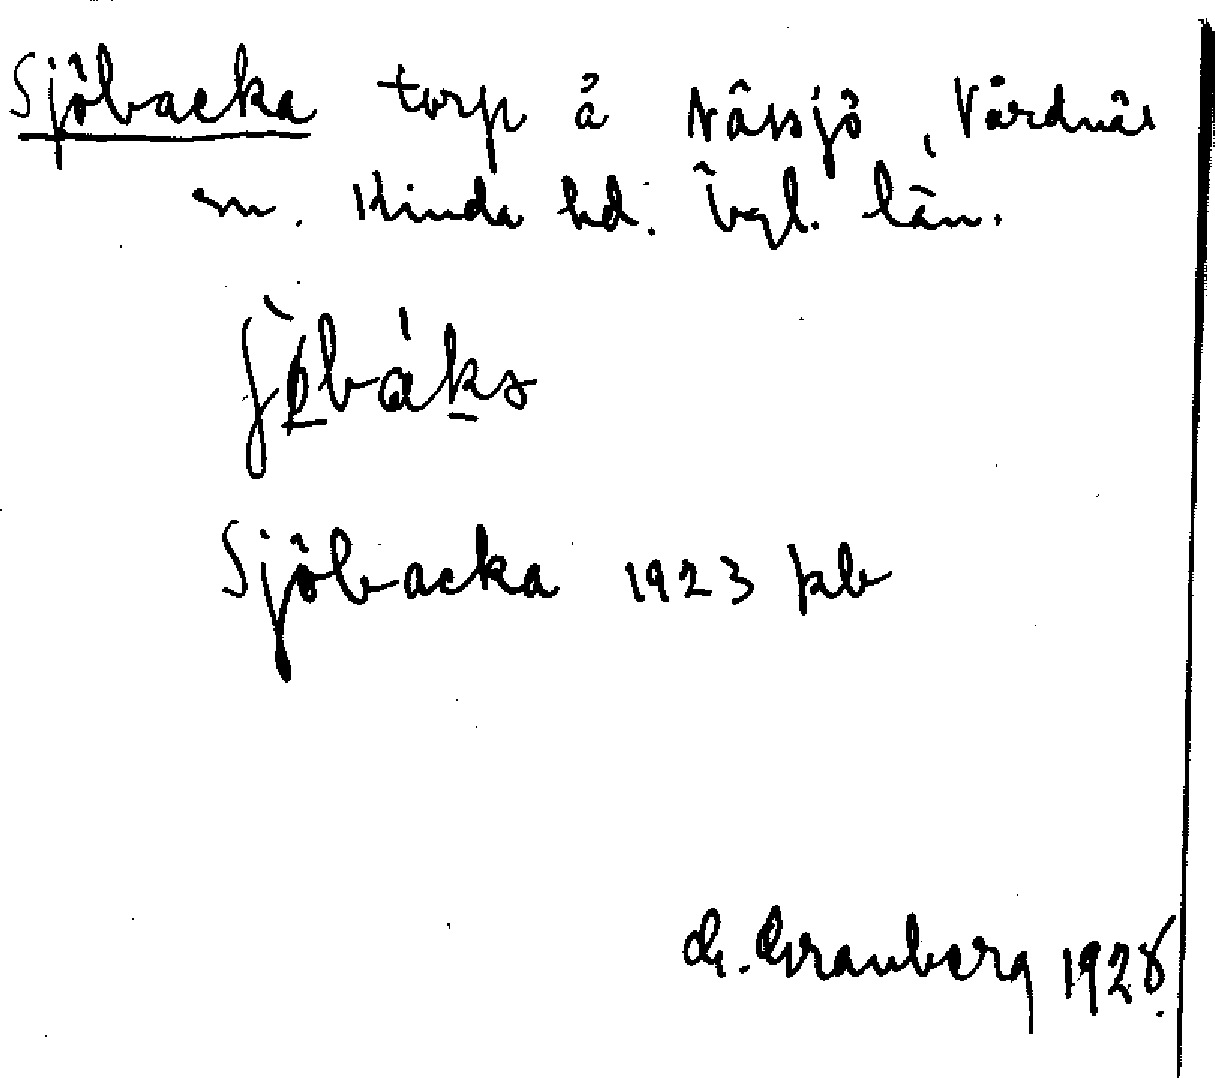 Sjöbacka torp å Nässjö, Vårdnäs
sn. Kinda hd. Ögl. län.
Sjöbacka 1923 kb
G. Granberg 1928.